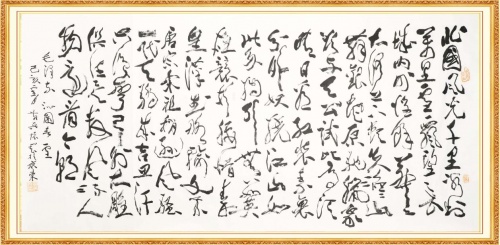 北國風光千里冰封
萬里雪飄望長
城内外惟餘莽莽
大河上下頓失滔滔山
舞銀蛇原馳蠟象
欲与天公試比高須
晴日看紅裝素裹
分外妖娆江山如
此多嬌引無數英
雄競折腰惜秦
皇漢武略輸文采
唐宗宋祖稍遜風騷
一代天驕成吉思汗
只識彎弓射大雕
俱往矣數風流人
物還看今朝
毛澤東沁園春雪
己亥